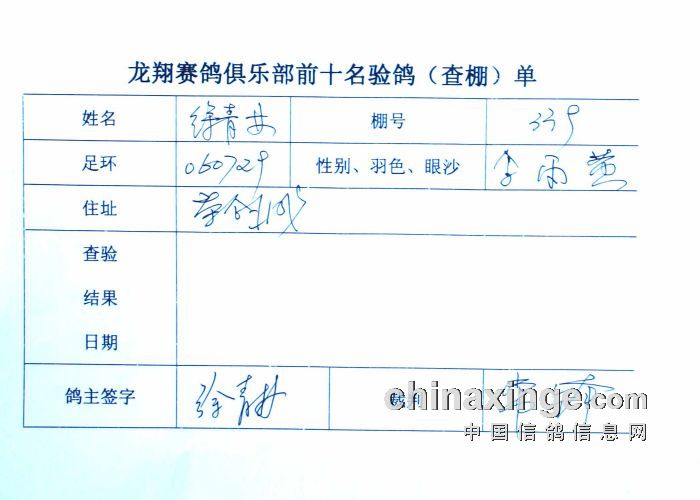 龙翔赛鸽俱乐部前十名验鸽（查棚）单
姓名 徐青林 棚号 339
足环 060729 性别、羽色、眼沙 雨 黄
住址
查验
结果
日期
鸽主签字 徐青林 裁判
chinaxinge.com
中国信鸽信息网